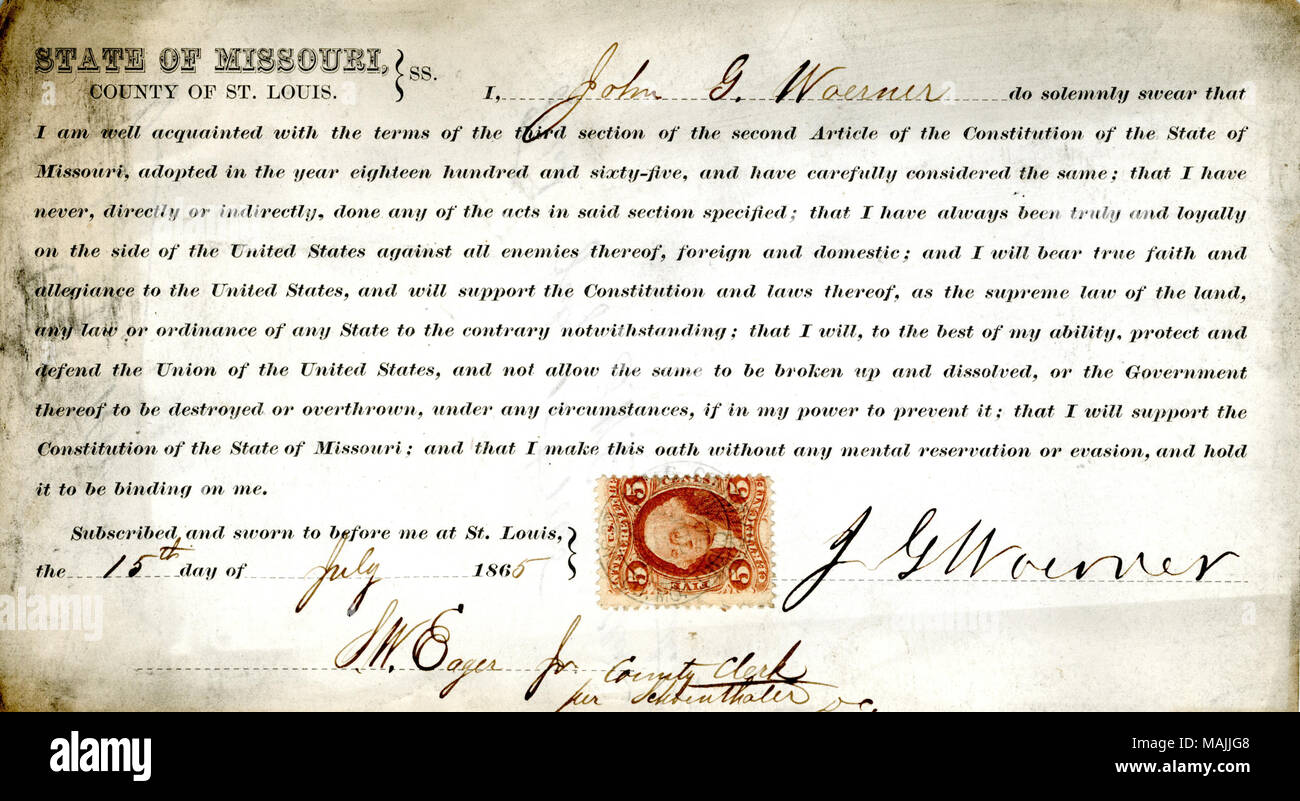 STATE OF MISSOURI, } SS.
COUNTY OF ST. LOUIS.
I, John G. Woerner do solemnly swear that
I am well acquainted with the terms of the third section of the second Article of the Constitution of the State of
Missouri, adopted in the year eighteen hundred and sixty-five, and have carefully considered the same; that I have
never, directly or indirectly, done any of the acts in said section specified; that I have always been truly and loyally
on the side of the United States against all enemies thereof, foreign and domestic; and I will bear true faith and
allegiance to the United States, and will support the Constitution and laws thereof, as the supreme law of the land,
any law or ordinance of any State to the contrary notwithstanding; that I will, to the best of my ability, protect and
defend the Union of the United States, and not allow the same to be broken up and dissolved, or the Government
thereof to be destroyed or overthrown, under any circumstances, if in my power to prevent it; that I will support the
Constitution of the State of Missouri; and that I make this oath without any mental reservation or evasion, and hold
it to be binding on me.
Subscribed and sworn to before me at St. Louis, }
the 15th day of July 1865
5 CENTS 5
U.S. INTER. REV.
5 FIVE 5
J G Woerner
S.W. Eager Jr County Clerk
per Schoenthaler D.C.
alamy
alamy
alamy
a
alamy
Image ID: MAJJG8
www.alamy.com